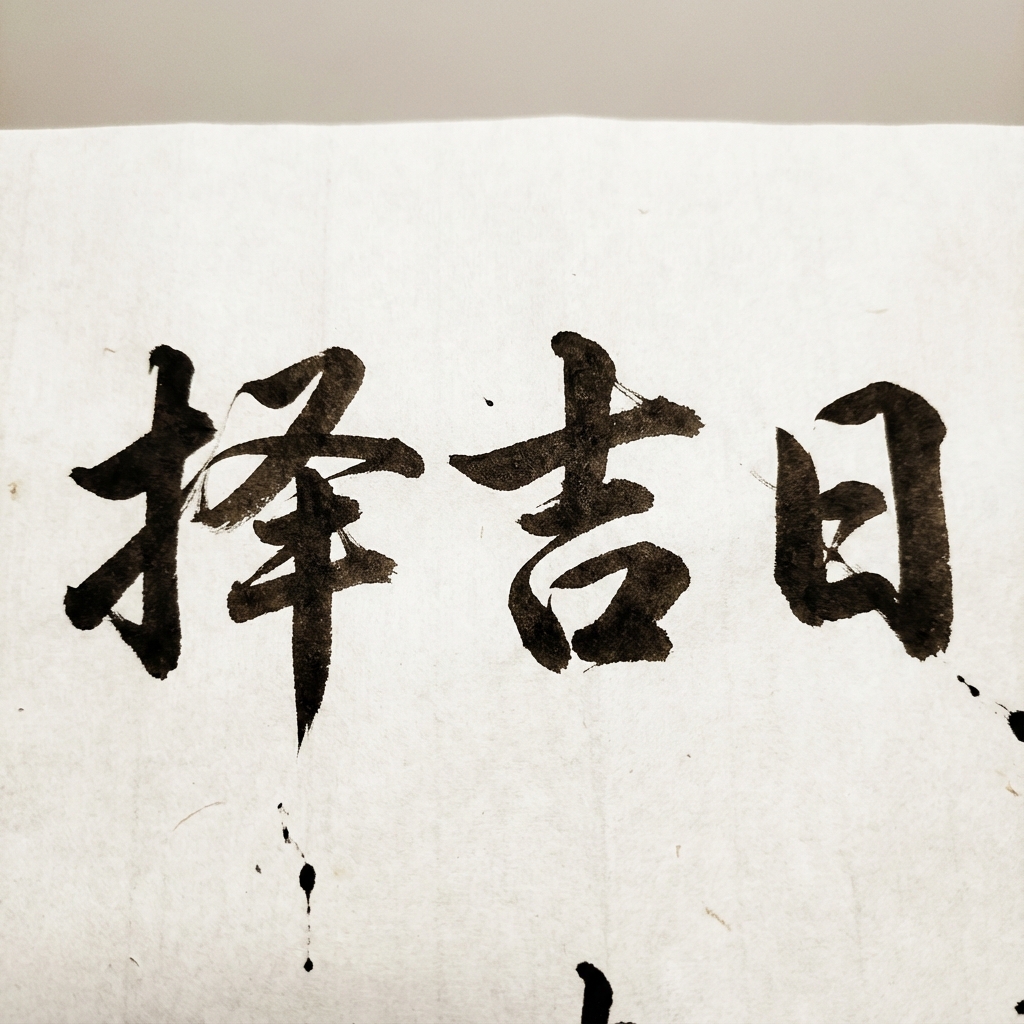 择吉日